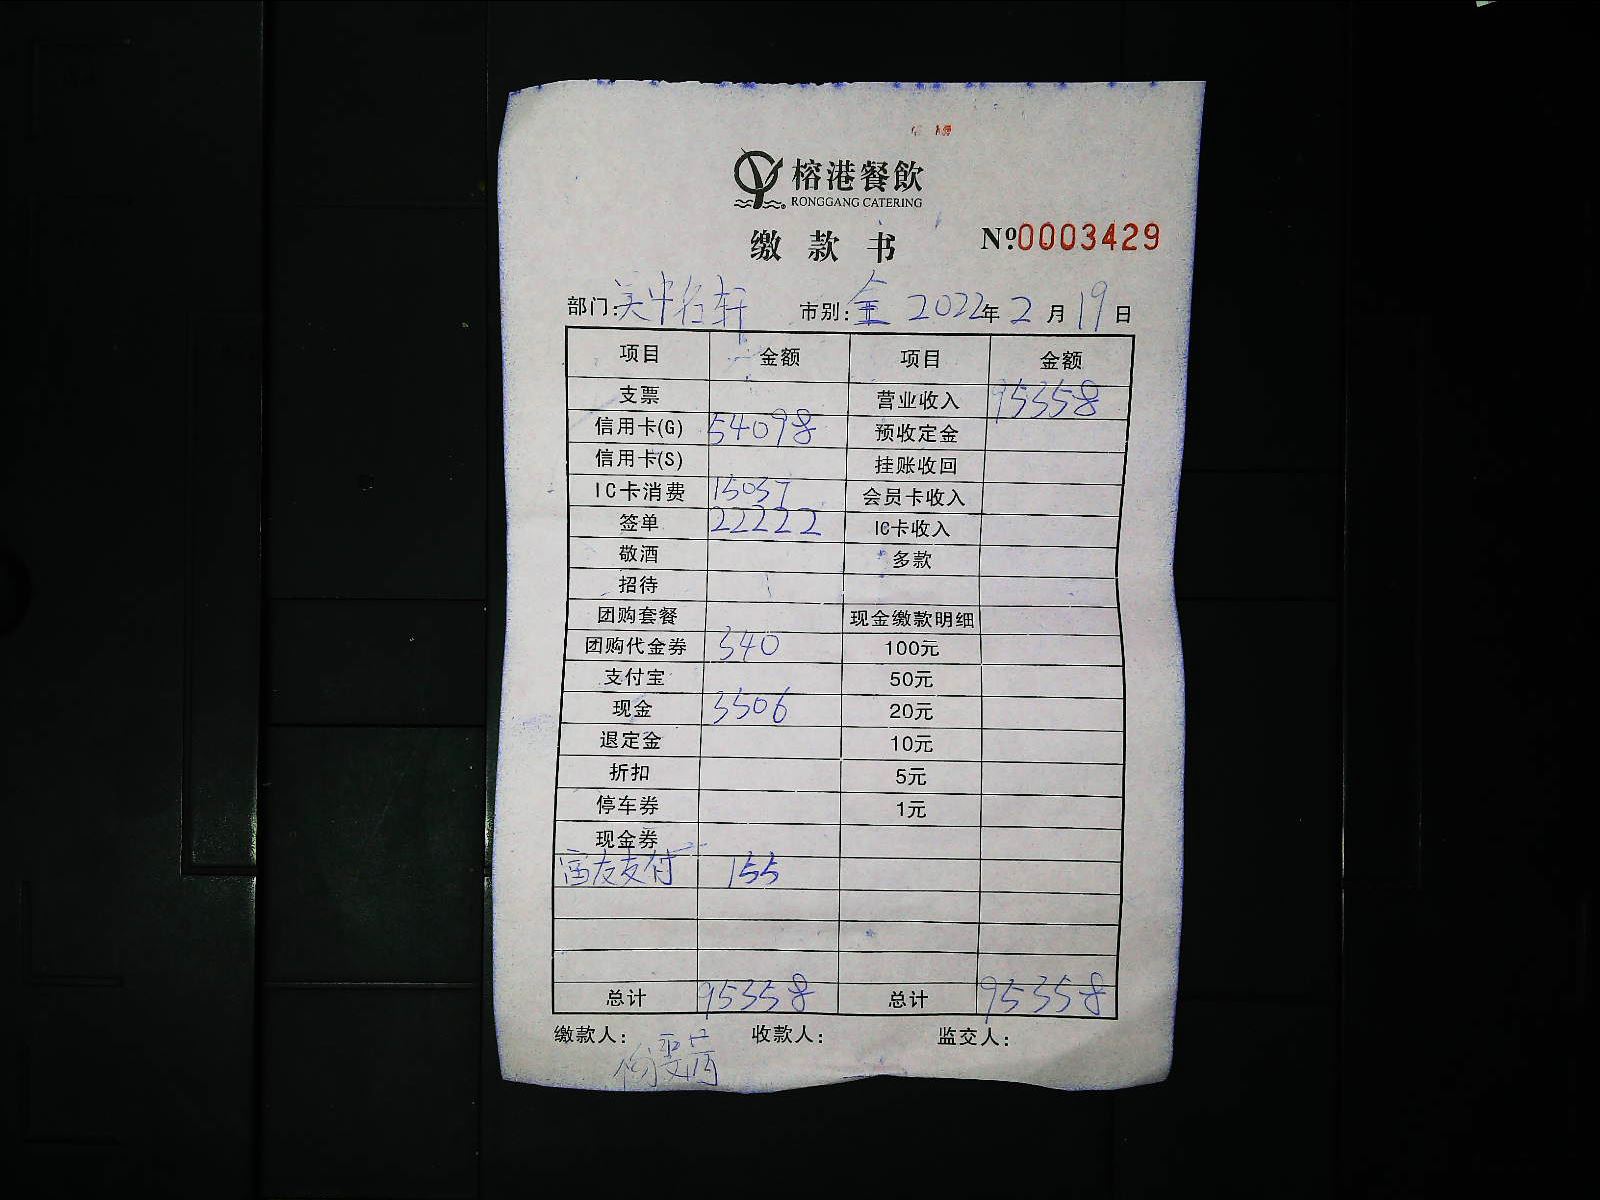 榕港餐飲
RONGGANG CATERING
缴款书 №0003429
部门:吴中名轩 市别:全 2022年2月19日
项目 金额 项目 金额
支票 营业收入 95358
信用卡(G) 54098 预收定金
信用卡(S) 挂账收回
IC卡消费 15037 会员卡收入
签单 22222 IC卡收入
敬酒 多款
招待
团购套餐 现金缴款明细
团购代金券 340 100元
支付宝 50元
现金 3506 20元
退定金 10元
折扣 5元
停车券 1元
现金券
富友支付 155
总计 95358 总计 95358
缴款人: 收款人: 监交人: